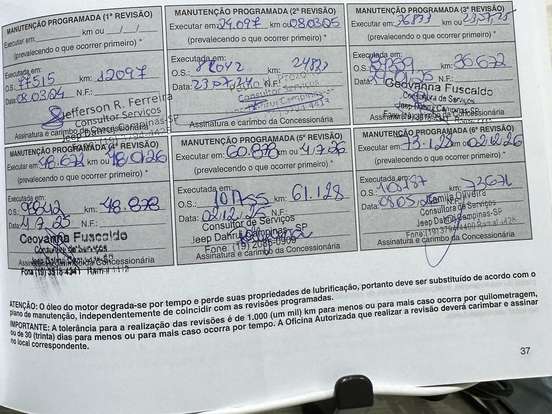 MANUTENÇÃO PROGRAMADA (1ª REVISÃO)
Executar em: km ou / /
(prevalecendo o que ocorrer primeiro) *
Executada em:
O.S.: 77515 km: 12097
Data: 08.03.24 N.F.:
Jefferson R. Ferreira
Consultor Serviços
Jeep Campinas-SP
Assinatura e carimbo da Concessionária
MANUTENÇÃO PROGRAMADA (2ª REVISÃO)
Executar em: 24.097 km ou 08.03.25
(prevalecendo o que ocorrer primeiro) *
Executada em:
O.S.: km: 24873
Data: 23.07.24 N.F.:
Consultor Serviços
Assinatura e carimbo da Concessionária
MANUTENÇÃO PROGRAMADA (3ª REVISÃO)
Executar em: 36873 km ou 23.07.25
(prevalecendo o que ocorrer primeiro) *
Executada em:
O.S.: km: 36672
Data: N.F.:
Geovanna Fuscaldo
Consultora de Serviços
Assinatura e carimbo da Concessionária
MANUTENÇÃO PROGRAMADA (4ª REVISÃO)
Executar em: 48.672 km ou
(prevalecendo o que ocorrer primeiro) *
Executada em:
O.S.: km: 48.878
Data: 4.7.25 N.F.:
Geovanna Fuscaldo
Consultora de Serviços
Assinatura e carimbo da Concessionária
MANUTENÇÃO PROGRAMADA (5ª REVISÃO)
Executar em: 60.878 km ou 4.7.26
(prevalecendo o que ocorrer primeiro) *
Executada em:
O.S.: km: 61.128
Data: 02.12.25 N.F.:
Consultor de Serviços
Jeep Dahruj Campinas - SP
Fone: (19)
Assinatura e carimbo da Concessionária
MANUTENÇÃO PROGRAMADA (6ª REVISÃO)
Executar em: 73.128 km ou 02.12.26
(prevalecendo o que ocorrer primeiro) *
Executada em:
O.S.: km: 72671
Data: N.F.:
Kamila Oliveira
Consultora de Serviços
Jeep Dahruj Campinas-SP
Assinatura e carimbo da Concessionária
ATENÇÃO: O óleo do motor degrada-se por tempo e perde suas propriedades de lubrificação, portanto deve ser substituído de acordo com o
plano de manutenção, independentemente de coincidir com as revisões programadas.
IMPORTANTE: A tolerância para a realização das revisões é de 1.000 (um mil) km para menos ou para mais caso ocorra por quilometragem,
ou de 30 (trinta) dias para menos ou para mais caso ocorra por tempo. A Oficina Autorizada que realizar a revisão deverá carimbar e assinar
no local correspondente.
37